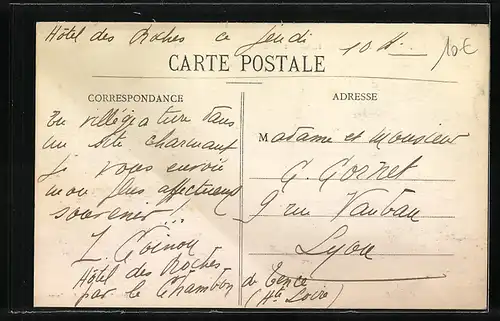 Hôtel des Roches ce Jeudi 10 H.
10 €
CARTE POSTALE
CORRESPONDANCE
ADRESSE
En villégiature dans
un site charmant
je vous envoie
mon plus affectueux
souvenir!
Hôtel des Roches
par le Chambon de Tence
(Hte Loire)
Madame et Monsieur
G. Gornet
9 rue Vauban
Lyon